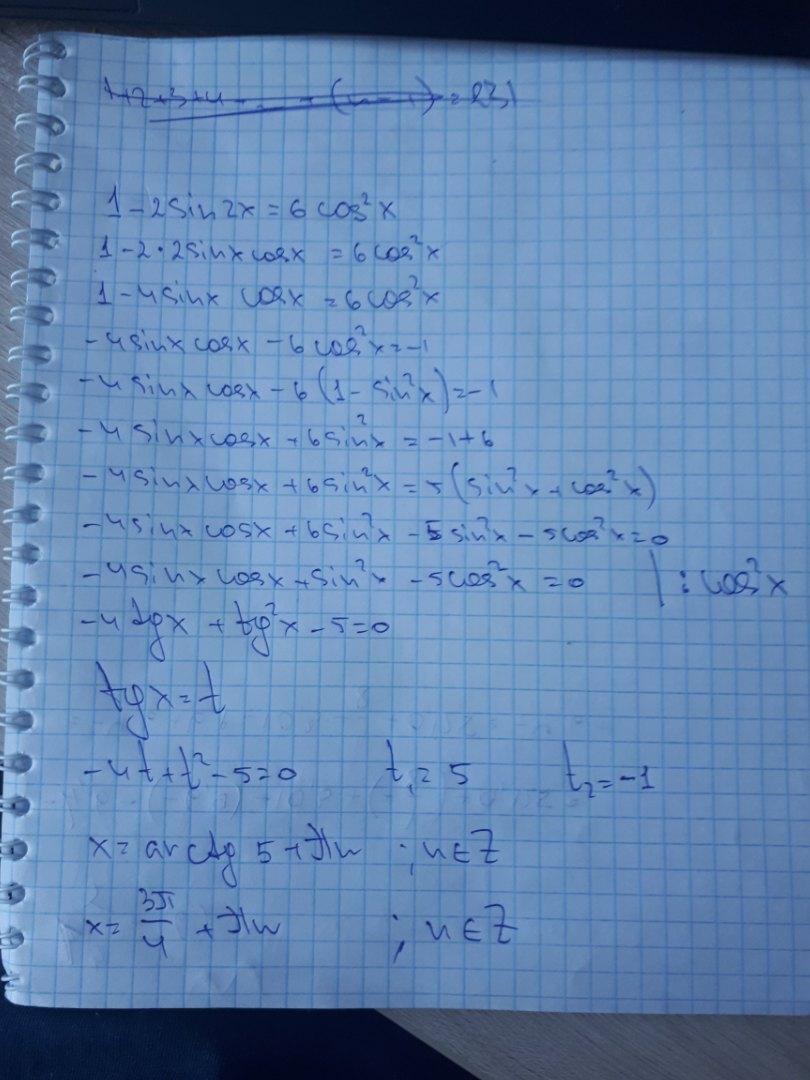 1+2+3+4 - ... - (n-1) = 231
1 - 2sin2x = 6cos²x
1 - 2·2sinxcosx = 6cos²x
1 - 4sinx cosx = 6cos²x
-4sinxcosx - 6cos²x = -1
-4sinxcosx - 6(1 - sin²x) = -1
-4sinxcosx + 6sin²x = -1+6
-4sinxcosx + 6sin²x = 5(sin²x + cos²x)
-4sinxcosx + 6sin²x - 5sin²x - 5cos²x = 0
-4sinxcosx + sin²x - 5cos²x = 0 | : cos²x
-4tgx + tg²x - 5 = 0
tgx = t
-4t + t² - 5 = 0 t₁ = 5 t₂ = -1
x = arctg 5 + πn ; n ∈ Z
x = 3π/4 + πn ; n ∈ Z